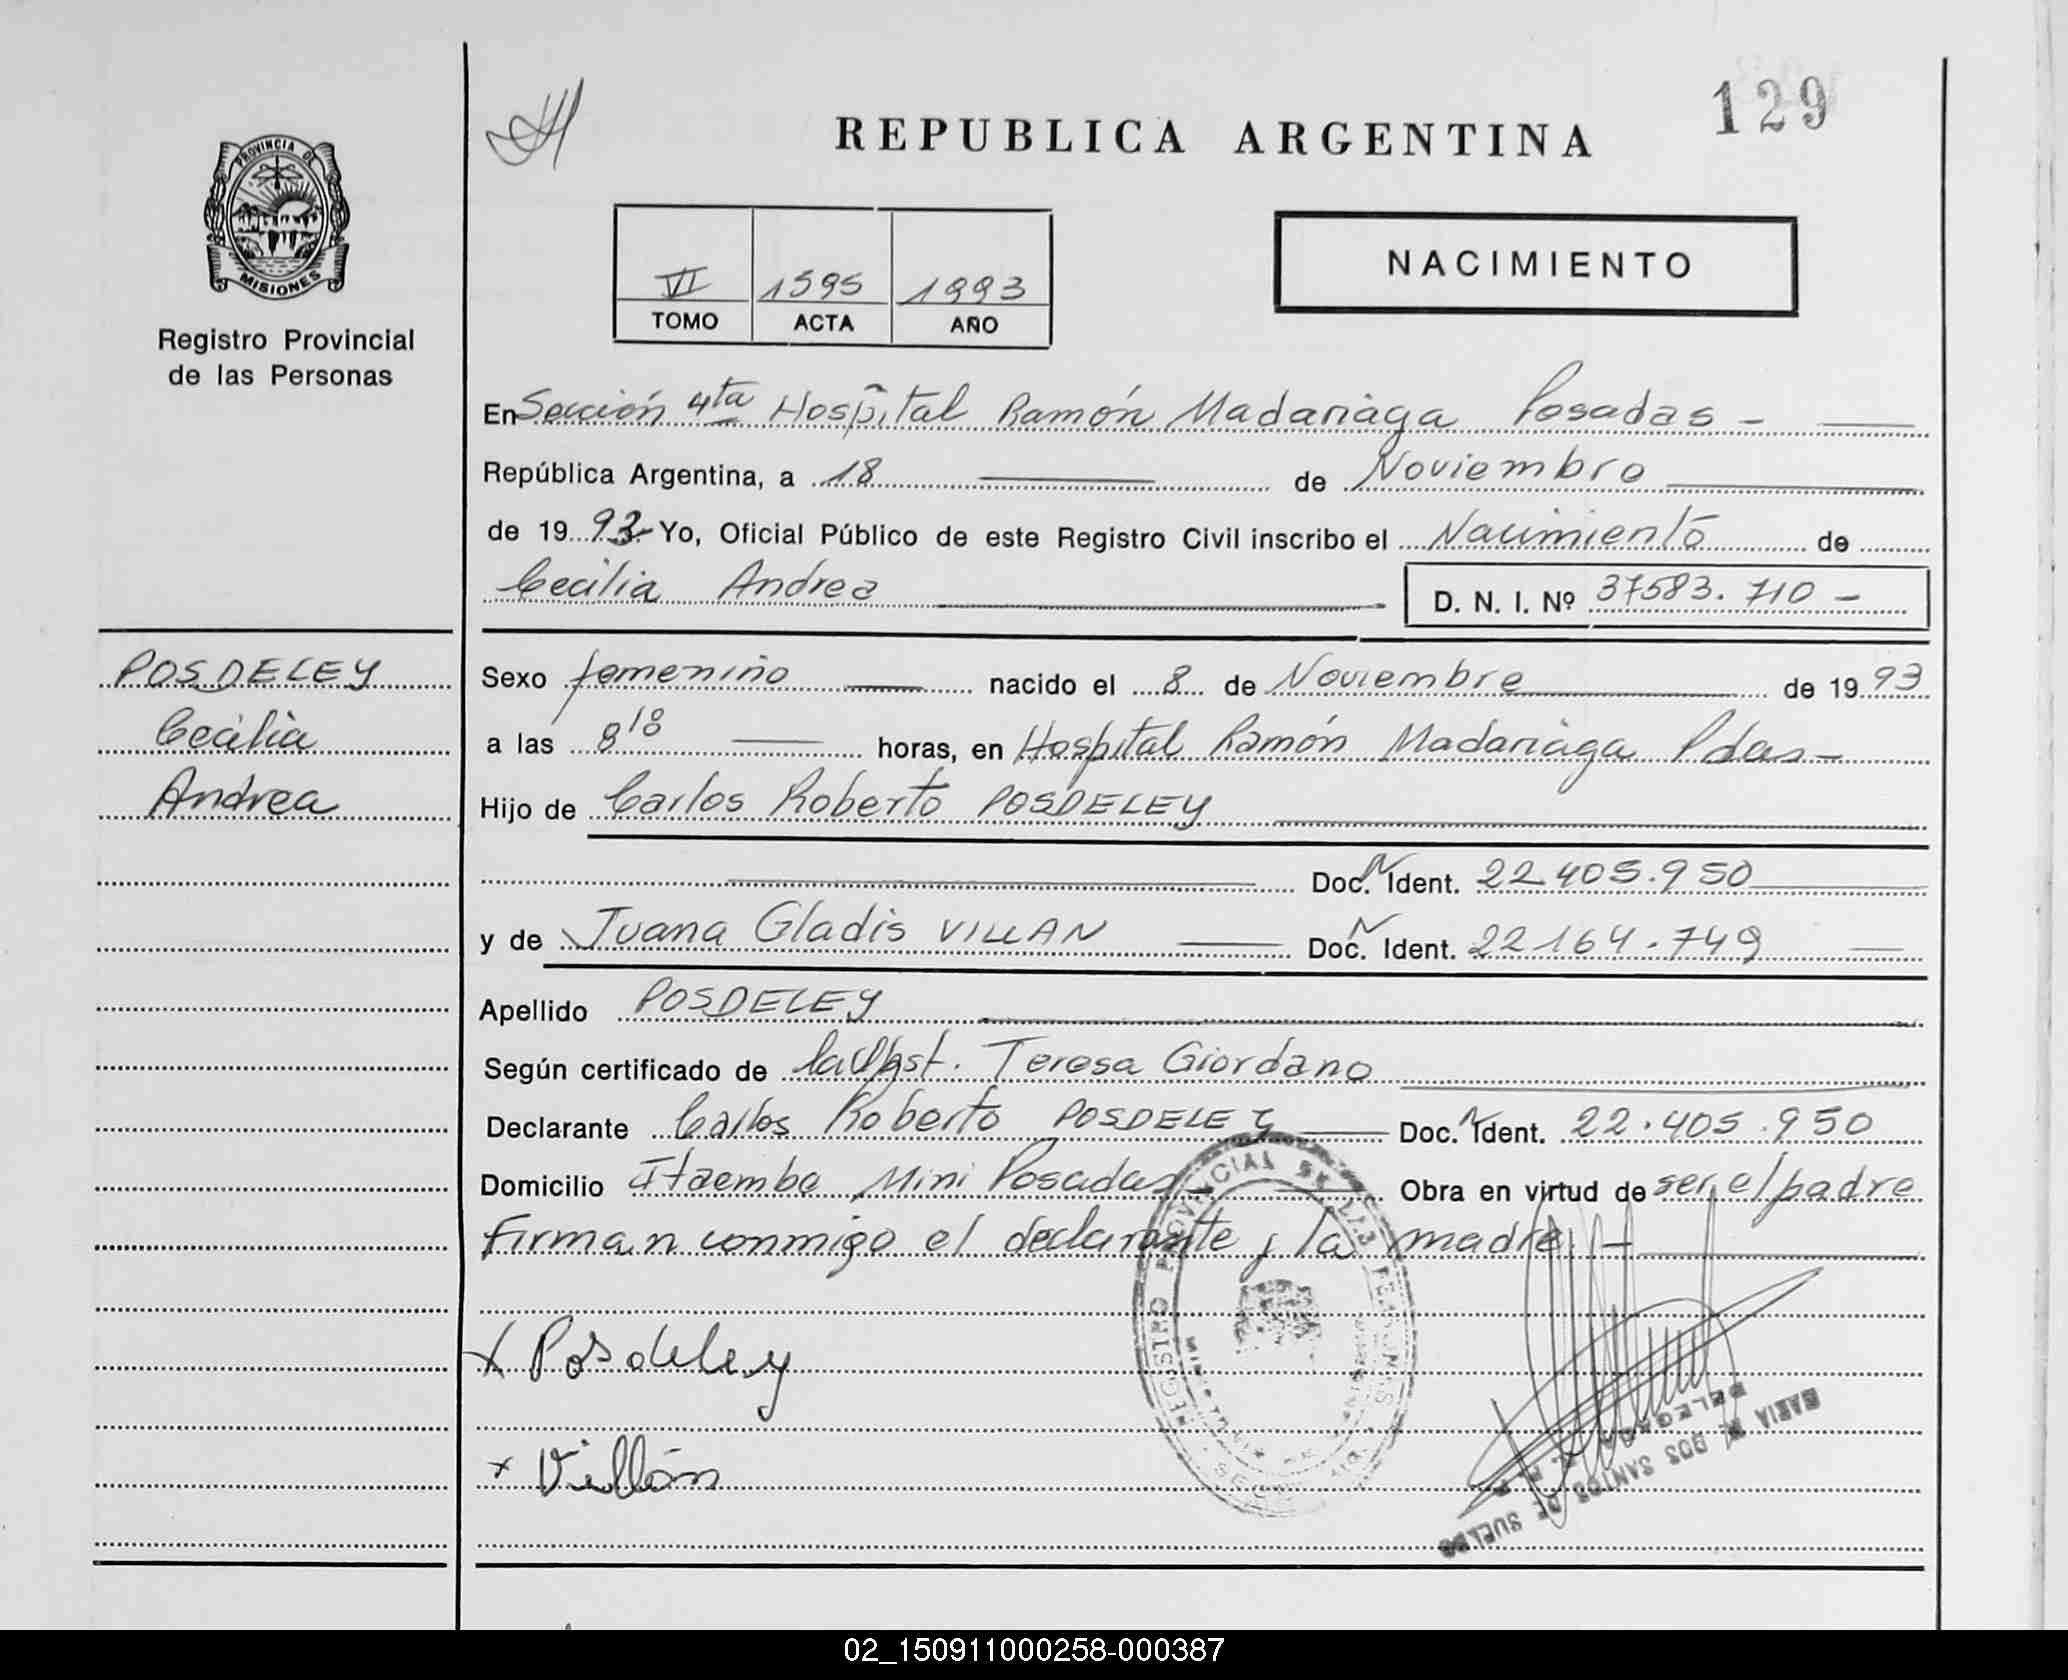 129
REPUBLICA ARGENTINA
PROVINCIA DE
MISIONES
Registro Provincial
de las Personas
VI 1595 1993
TOMO ACTA AÑO
NACIMIENTO
En Sección 4ta Hospital Ramón Madariaga Posadas -
República Argentina, a 18 de Noviembre
de 19 93 Yo, Oficial Público de este Registro Civil inscribo el Nacimiento de
Cecilia Andrea D. N. I. Nº 37583.710 -
POSDELEY
Cecilia
Andrea
Sexo femenino nacido el 8 de Noviembre de 19 93
a las 8 18 horas, en Hospital Ramón Madariaga Pdas -
Hijo de Carlos Roberto POSDELEY
Doc. N Ident. 22.405.950
y de Juana Gladis VILLAN Doc. N Ident. 22.164.749
Apellido POSDELEY
Según certificado de Teresa Giordano
Declarante Carlos Roberto POSDELEY Doc. N Ident. 22.405.950
Domicilio Itaembe Mini Posadas - Obra en virtud de ser el padre
Firman conmigo el declarante y la madre -
x Posdeley
x Villán
REGISTRO PROVINCIAL DE LAS PERSONAS
MARIA DOS SANTOS DE SUELDO
DELEGADA
02_150911000258-000387